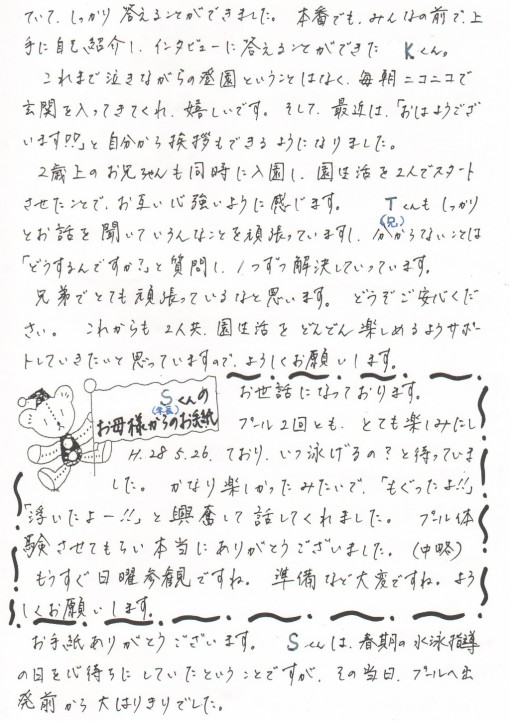 ていて、しっかり答えることができました。 本番でも、みんなの前で、上
手に自己紹介し、インタビューに答えることができた Kくん。
これまで泣きながらの登園ということはなく、毎朝ニコニコで
玄関を入ってきてくれ、嬉しいです。 そして、最近は、「おはようござい
ます!!」と自分から挨拶もできるようになりました。
2歳上のお兄ちゃんも同時に入園し、園生活を2人でスタート
させたことで、お互い心強いように感じます。 Tくんも しっかり
(兄)
とお話を聞いていろんなことを頑張っていますし、分からないことは
「どうするんですか?」と質問し、1つずつ解決していっています。
兄弟でとても頑張っているなと思います。 どうぞご安心くだ
さい。 これからも 2人共、園生活をどんどん楽しめるようサポー
トしていきたいと思っていますので、よろしくお願いします。
Sくんの
(年長)
お母様からのお手紙
H.28.5.26.
お世話になっております。
プール2回とも、とても楽しみにし
ており、いつ泳げるの?と待っていま
した。 かなり楽しかったみたいで、「もぐったよ!!」
「浮いたよー!!」と興奮して話してくれました。 プール体
験させてもらい本当にありがとうございました。 (中略)
もうすぐ日曜参観ですね。 準備など大変ですね。よろ
しくお願いします。
お手紙ありがとうございます。 Sくんは、春期の水泳指導
の日を心待ちにしていたということですが、その当日、プールへ出
発前から大はりきりでした。